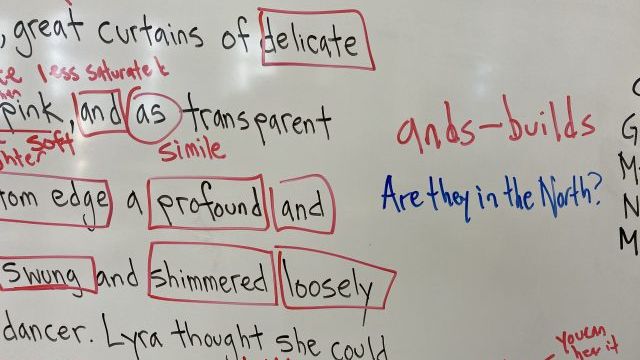 , great curtains of delicate
less saturated
pink, and as transparent
soft
simile
edge a profound and
swung and shimmered loosely
dancer. Lyra thought she could
ands-builds
Are they in the North?
G
M
N
M
You can
her it